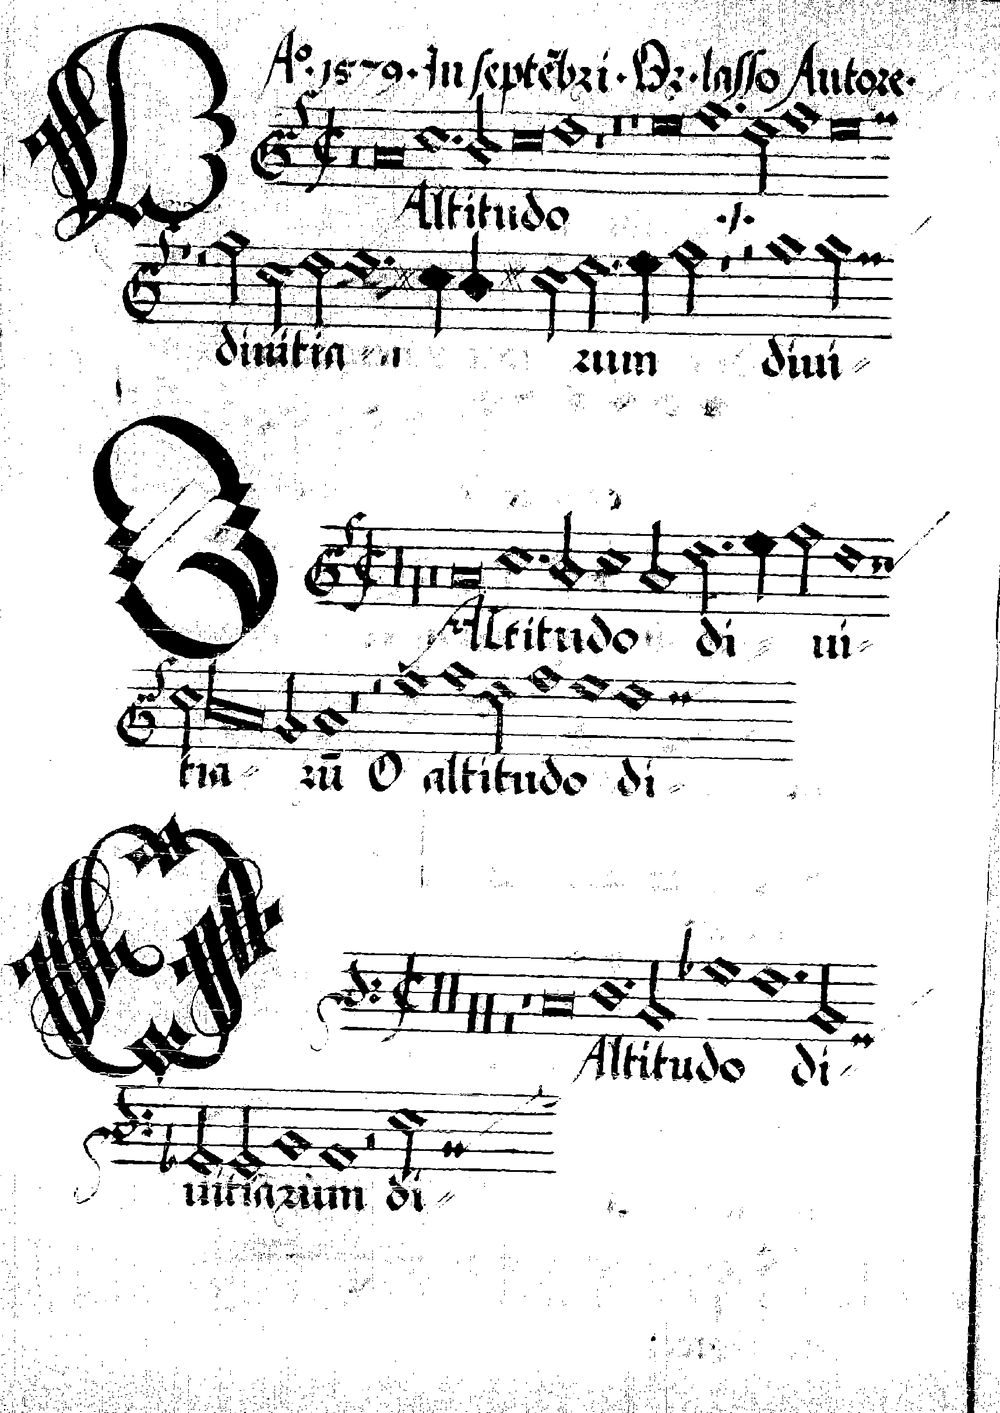 Aº. 1579. In septẽbri. Or. lasso Autore.
O
Altitudo ./.
diuitia rum diui
O
Altitudo di ui
tia rũ O altitudo di
O
Altitudo di
uitiarum di